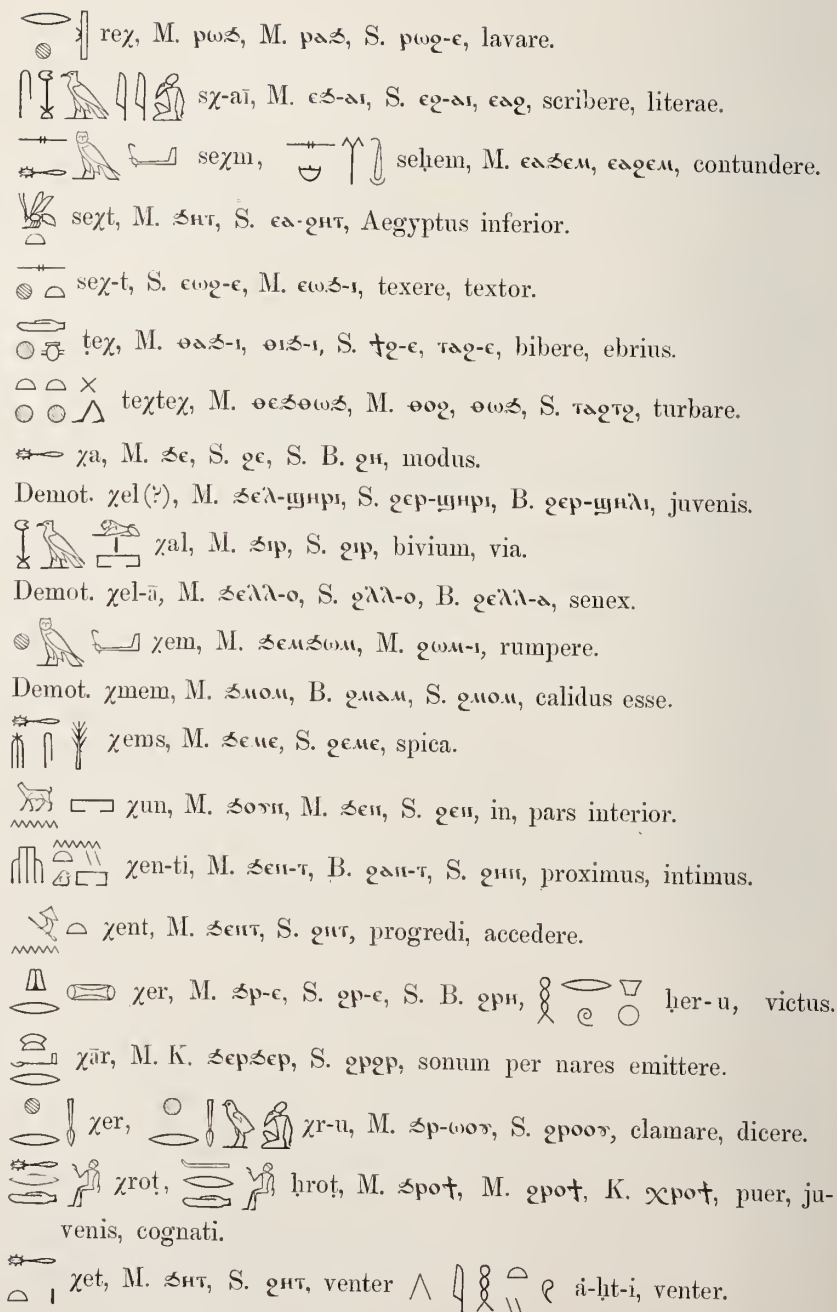 reχ, M. ⲣⲱϧ, M. ⲣⲁϧ, S. ⲣⲱϩ-ⲉ, lavare.
sχ-aī, M. ⲥϧ-ⲁⲓ, S. ⲥϩ-ⲁⲓ, ⲥⲁϩ, scribere, literae.
seχm, seḥem, M. ⲥⲁϧⲉⲙ, ⲥⲁϩⲉⲙ, contundere.
seχt, M. ϧⲏⲧ, S. ⲥⲁ-ϩⲏⲧ, Aegyptus inferior.
seχ-t, S. ⲥⲱϩ-ⲉ, M. ⲥⲱϧ-ⲓ, texere, textor.
ṭeχ, M. ⲑⲁϧ-ⲓ, ⲑⲓϧ-ⲓ, S. ϯϩ-ⲉ, ⲧⲁϩ-ⲉ, bibere, ebrius.
teχteχ, M. ⲑⲉϧⲑⲱϧ, M. ⲑⲟϩ, ⲑⲱϧ, S. ⲧⲁϩⲧϩ, turbare.
χa, M. ϧⲉ, S. ϩⲉ, S. B. ϩⲏ, modus.
Demot. χel (?), M. ϧⲉⲗ-ϣⲏⲣⲓ, S. ϩⲉⲣ-ϣⲏⲣⲓ, B. ϩⲉⲣ-ϣⲏⲗⲓ, juvenis.
χal, M. ϧⲓⲣ, S. ϩⲓⲣ, bivium, via.
Demot. χel-ā, M. ϧⲉⲗⲗ-ⲟ, S. ϩⲗⲗ-ⲟ, B. ϩⲉⲗⲗ-ⲁ, senex.
χem, M. ϧⲉⲙϧⲱⲙ, M. ϩⲱⲙ-ⲓ, rumpere.
Demot. χmem, M. ϧⲙⲟⲙ, B. ϩⲙⲁⲙ, S. ϩⲙⲟⲙ, calidus esse.
χems, M. ϧⲉⲙⲥ, S. ϩⲉⲙⲥ, spica.
χun, M. ϧⲟⲩⲛ, M. ϧⲉⲛ, S. ϩⲉⲛ, in, pars interior.
χen-ti, M. ϧⲉⲛ-ⲧ, B. ϩⲁⲛ-ⲧ, S. ϩⲏⲛ, proximus, intimus.
χent, M. ϧⲉⲛⲧ, S. ϩⲛⲧ, progredi, accedere.
χer, M. ϧⲣ-ⲉ, S. ϩⲣ-ⲉ, S. B. ϩⲣⲏ, ḥer-u, victus.
χār, M. K. ϧⲉⲣϧⲉⲣ, S. ϩⲣϩⲣ, sonum per nares emittere.
χer, χr-u, M. ϧⲣ-ⲱⲟⲩ, S. ϩⲣⲟⲟⲩ, clamare, dicere.
χroṭ, ḥroṭ, M. ϧⲣⲟϯ, M. ϩⲣⲟϯ, K. ⲭⲣⲟϯ, puer, ju-
venis, cognati.
χet, M. ϧⲏⲧ, S. ϩⲏⲧ, venter ȧ-ḥt-i, venter.